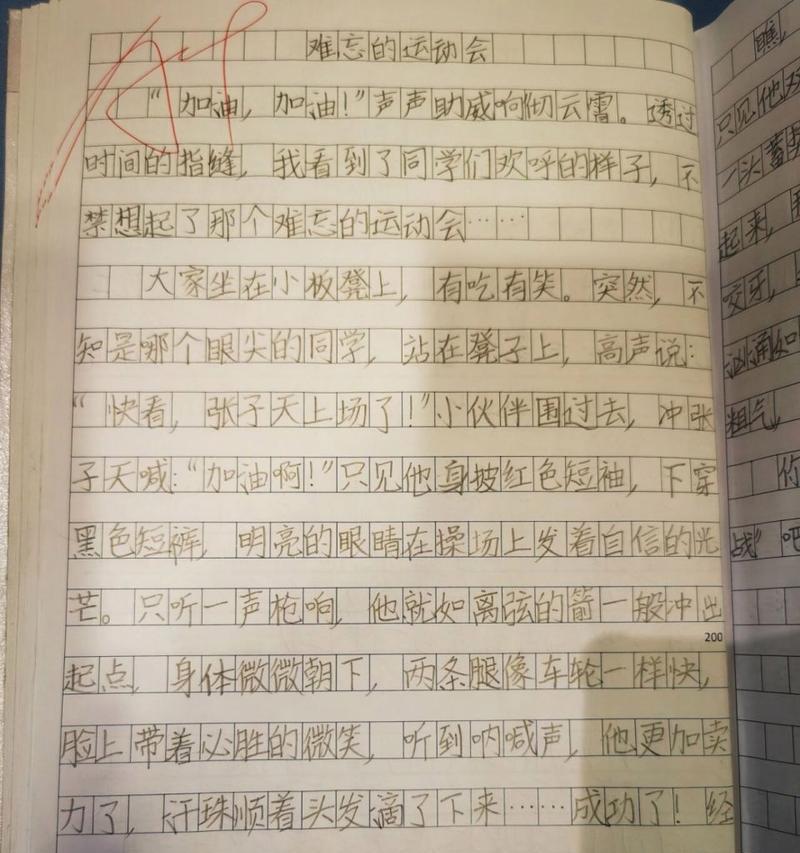 难忘的运动会
“加油，加油！”声声助威响彻云霄。透过
时间的指缝，我看到了同学们欢呼的样子，不
禁想起了那个难忘的运动会……
大家坐在小板凳上，有吃有笑。突然，不
知是哪个眼尖的同学，站在凳子上，高声说：
“快看，张子天上场了！”小伙伴围过去，冲张
子天喊：“加油啊！”只见他身披红色短袖，下穿
黑色短裤，明亮的眼睛在操场上发着自信的光
芒。只听一声枪响，他就如离弦的箭一般冲出
200
起点，身体微微朝下，两条腿像车轮一样快，
脸上带着必胜的微笑，听到呐喊声，他更加卖
力了，汗珠顺着头发滴了下来……成功了！经
瞧，
只见他双
一头蓄
起来，
咬牙，
汹涌如
粗气，
你
战”吧